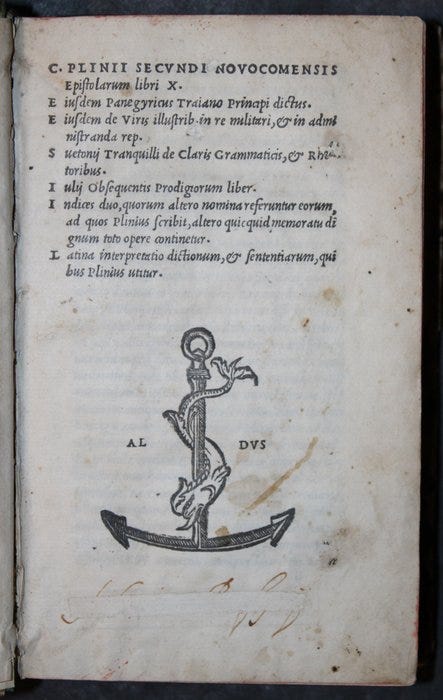 C. PLINII SECVNDI NOVOCOMENSIS
Epistolarum libri X.
E iusdem Panegyricus Traiano Principi dictus.
E iusdem de Viris illustrib. in re militari, & in admi
nistranda rep.
S uetonij Tranquilli de Claris Grammaticis, & Rhe
toribus.
I ulij Obsequentis Prodigiorum liber.
I ndices duo, quorum altero nomina referuntur eorum,
ad quos Plinius scribit, altero quicquid memoratu di
gnum toto opere continetur.
L atina interpretatio dictionum, & sententiarum, qui
bus Plinius utitur.
AL DVS